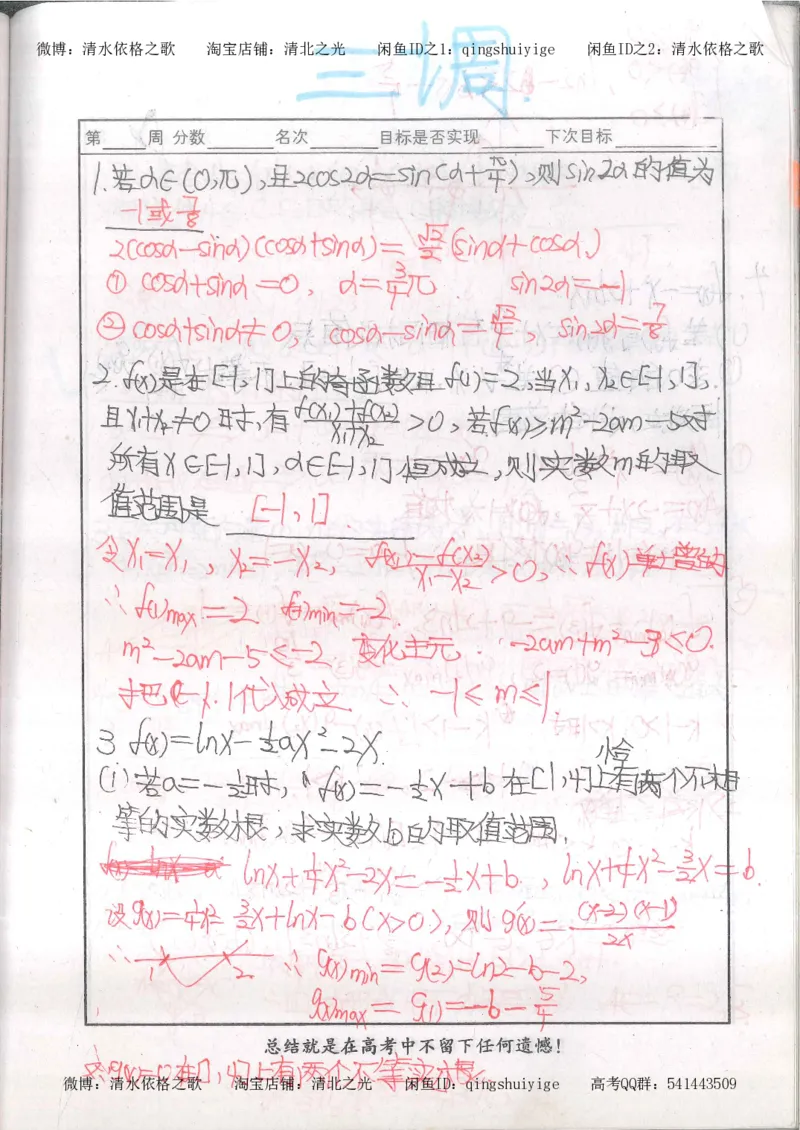 微博：清水依格之歌 淘宝店铺：清北之光 闲鱼ID之1：qingshuiyige 闲鱼ID之2：清水依格之歌
三调.
第____周 分数______名次______目标是否实现______下次目标______
1.若α∈(0,π),且2cos2α=sin(α+π/4),则sin2α的值为
-1或7/8
2(cosα-sinα)(cosα+sinα)=√2/2(sinα+cosα)
① cosα+sinα=0, α=3/4π sin2α=-1
② cosα+sinα≠0, cosα-sinα=√2/4, sin2α=7/8
2.f(x)是在[-1,1]上的奇函数且f(1)=2,当x1,x2∈[-1,1],
且x1+x2≠0时,有f(x1)+f(x2)/x1+x2>0,若f(x)>m²-2am-5对
所有x∈[-1,1],a∈[-1,1]恒成立,则实数m的取
值范围是 [-1,1].
令x1=x1, x2=-x2, f(x1)-f(x2)/x1-x2>0,∴f(x)单增
∴f(x)max=2. f(x)min=-2.
m²-2am-5≤-2. 变化主元. -2am+m²-3≤0.
把-1.1代入成立. ∴ -1≤m≤1.
3 f(x)=lnx-½ax²-2x.
(1)若a=-½时, f(x)=-½x+b在[1,4]上恰有两个不相
等的实数根,求实数b的取值范围.
lnx+¼x²-2x=-½x+b., lnx+¼x²-3/2x=b.
设g(x)=¼x²-3/2x+lnx-b(x>0),则g'(x)=(x-2)(x-1)/2x
∴ 1 2 ∴ g(x)min=g(2)=ln2-b-2,
g(x)max=g(1)=-b-5/4
总结就是在高考中不留下任何遗憾!
∵g(x)=0在[1,4]上有两个不等实根
微博：清水依格之歌 淘宝店铺：清北之光 闲鱼ID：qingshuiyige 高考QQ群：541443509